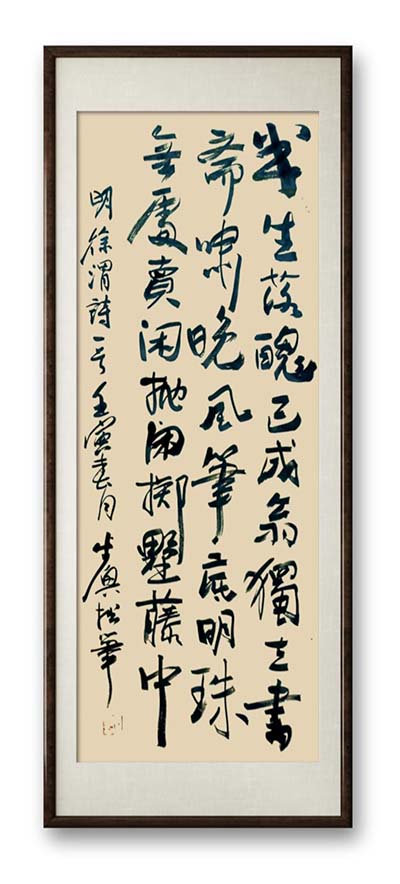 半生落魄已成翁獨立書
齋嘯晚風筆底明珠
無處賣闲拋闲擲墅藤中
明徐渭詩一首壬寅春月 松筆